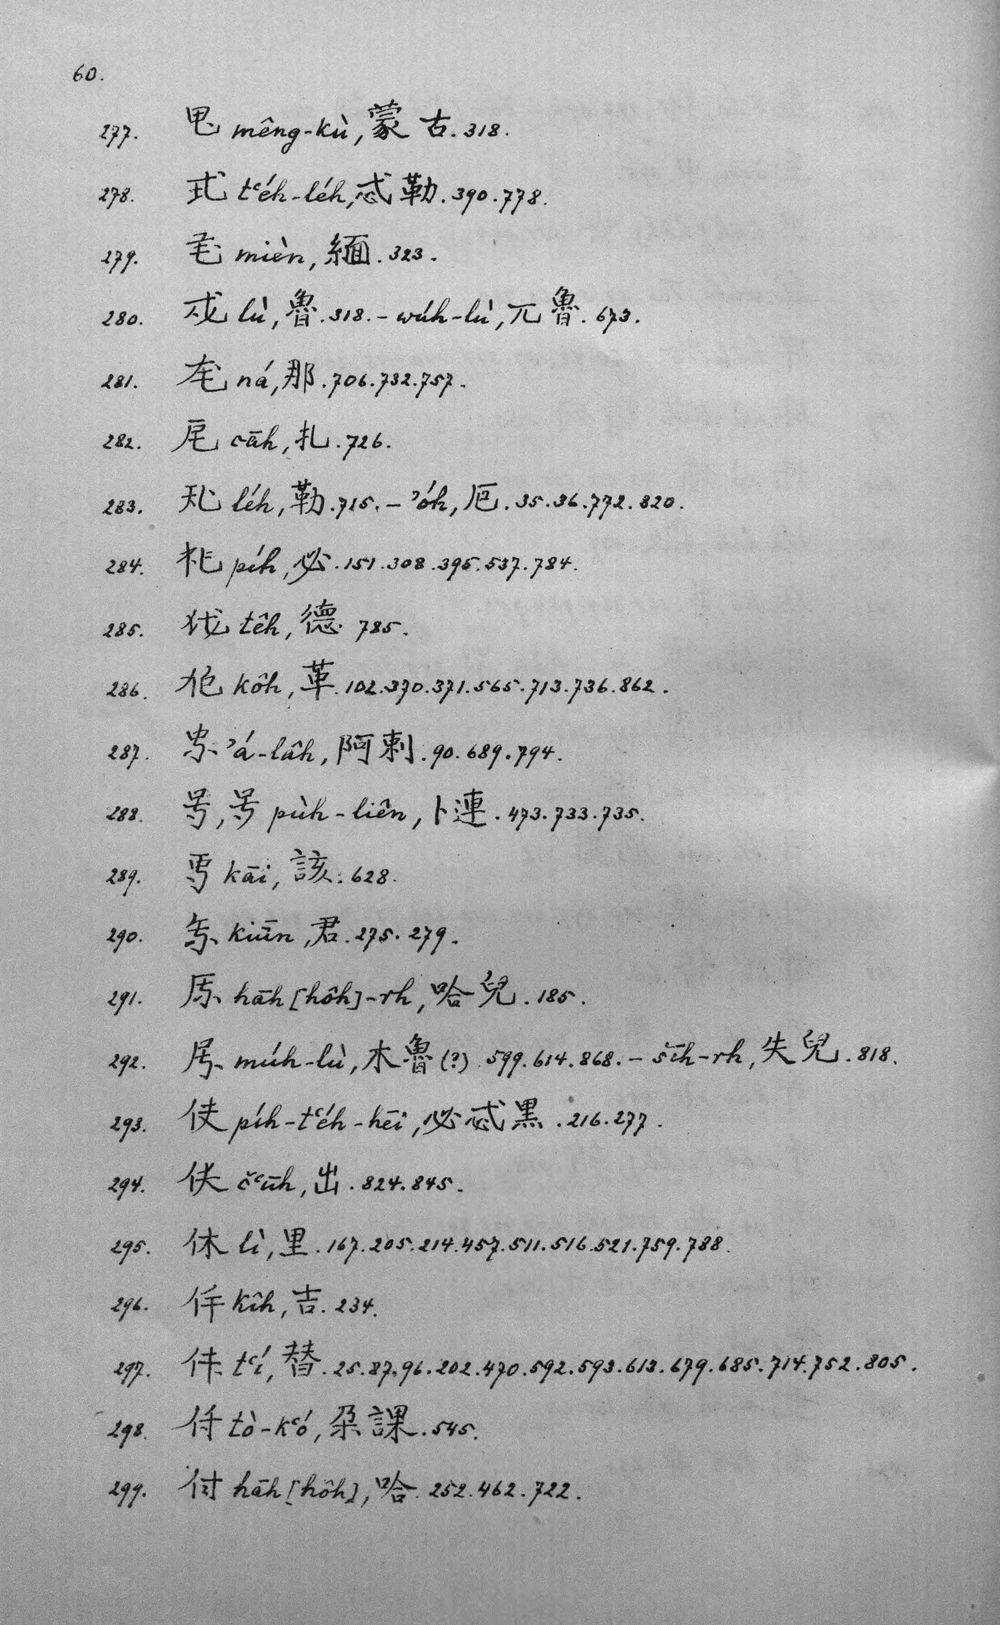 60.
277. mêng-kù, 蒙古. 318.
278. tʿéh-léh, 忒勒. 390. 778.
279. mièn, 緬. 323.
280. lù, 魯. 318. – wúh-lù, 兀魯. 673.
281. ná, 那. 706. 732. 757.
282. cāh, 扎. 726.
283. léh, 勒. 715. – ʾóh, 厄. 35. 36. 772. 820.
284. píh, 必. 151. 308. 395. 537. 784.
285. têh, 德. 785.
286. kôh, 革. 102. 370. 371. 565. 713. 736. 862.
287. ʾá-lâh, 阿剌. 90. 689. 794.
288. pùh-liên, 卜連. 473. 733. 735.
289. kāi, 該. 628.
290. kiūn, 君. 275. 279.
291. hāh [hôh]-rh, 哈兒. 185.
292. múh-lù, 木魯 (?). 599. 614. 868. – šīh-rh, 失兒. 818.
293. píh-tʿéh-hēi, 必忒黑. 216. 277.
294. čʿūh, 出. 824. 845.
295. lì, 里. 167. 205. 214. 457. 511. 516. 521. 759. 788.
296. kîh, 吉. 234.
297. tʿí, 替. 25. 87. 96. 202. 470. 592. 593. 613. 679. 685. 714. 752. 805.
298. tò-kʿó, 朶課. 545.
299. hāh [hôh], 哈. 252. 462. 722.